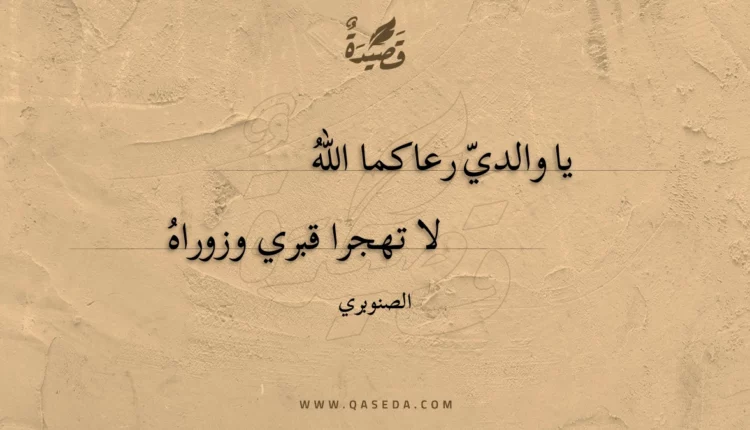 قَصِيْدَةٌ
يا والديّ رعاكما اللهُ
لا تهجرا قبري وزوراهُ
الصنوبري
WWW.QASEDA.COM